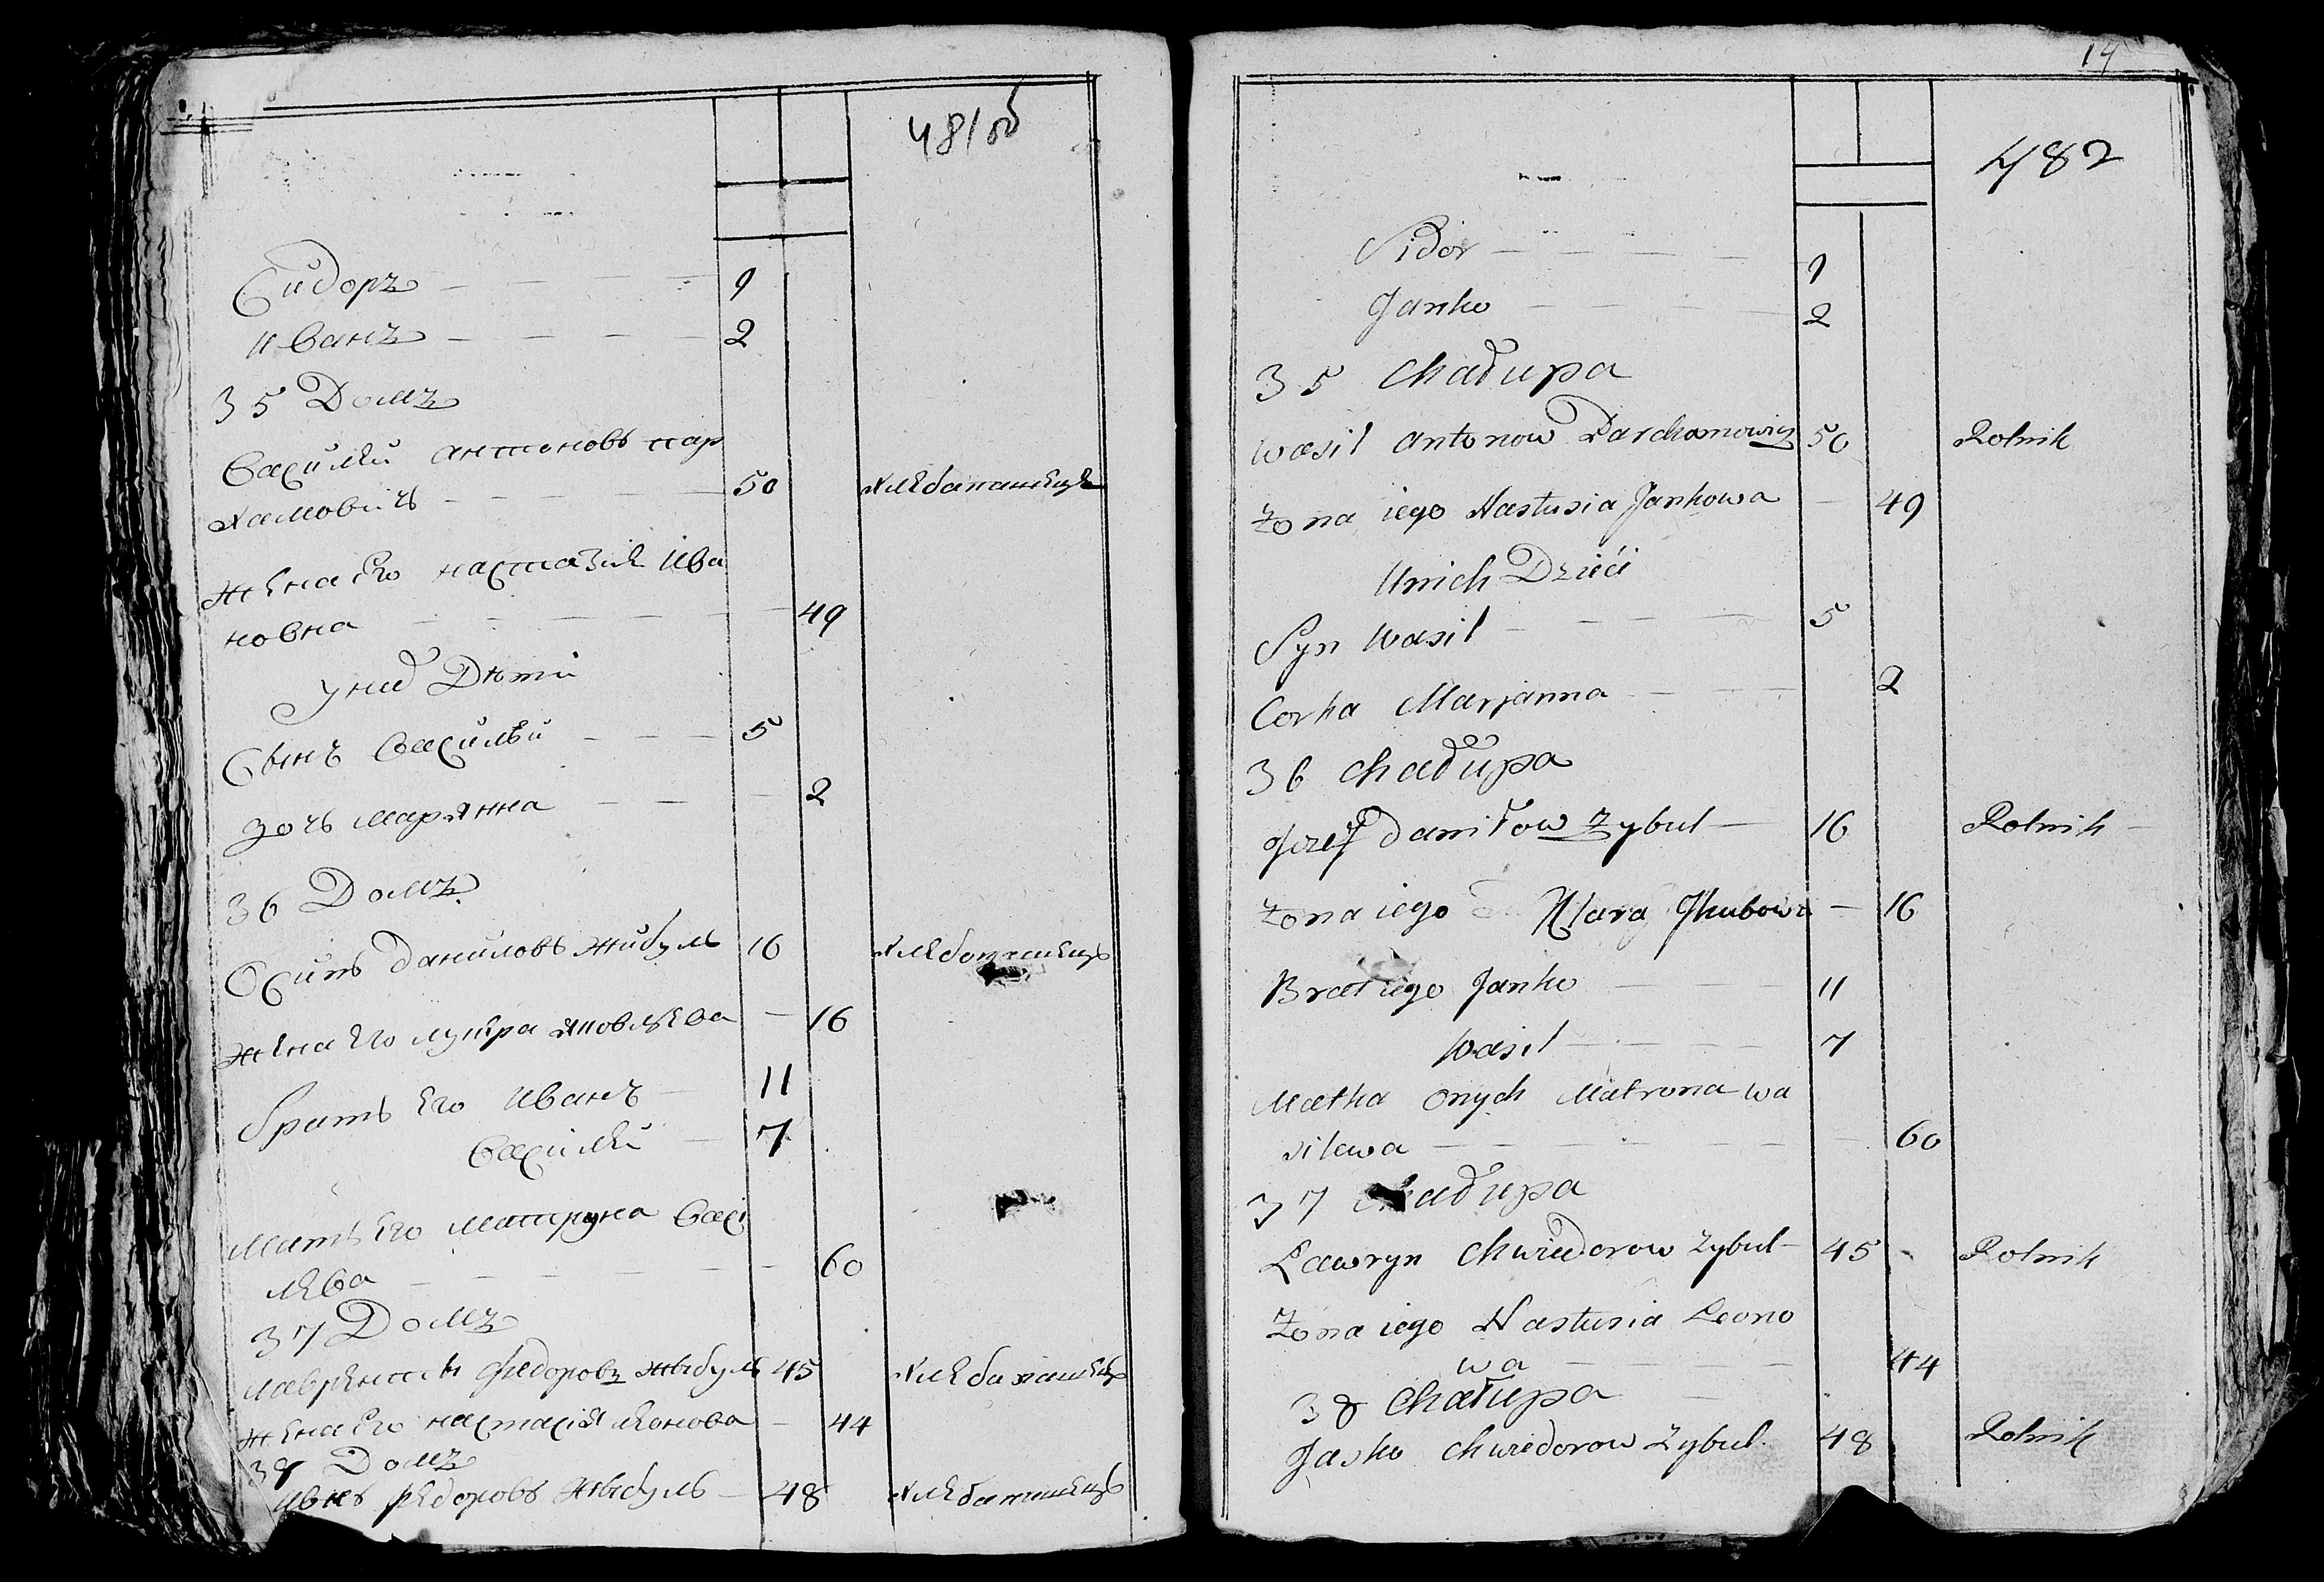 481об
Сидоръ 1
Иванъ 2
35 Домъ
Василей Антоновъ пар
хамовичъ 50 хлебапашецъ
жена Его настазия Ива
новна 49
у них Дети
Сынъ Василей 5
дочь Марянна 2
36 Домъ
Осипъ Даниловъ жибуль 16 хлебапашецъ
жена Его яковлева 16
братъ Его Иванъ 11
Василей 7
Мать Его Матруна Васи
лева 60
37 Домъ
Лаврентей Федоровъ жыбуль 45 хлебапашецъ
жена Его настасия леонова 44
38 Домъ
Федоровъ жыбуль 48 хлебапашецъ
14
482
Sidor 1
Janko 2
35 Chałupa
Wasil Antonow Parchamowicz 50 Rolnik
Zona iego Nastusia Jankowa 49
Unich Dzieci
Syn Wasil 5
Corka Marjanna 2
36 Chałupa
Jozef Daniłow Zybul 16 Rolnik
Zona iego Klara Jkubowa 16
Brat iego Janko 11
Wasil 7
Matka Onych Matrona Wa
silewa 60
37 Chałupa
Ławryn Chwiedorow Zybul 45 Rolnik
Zona iego Nastusia Leono
wa 44
38 Chałupa
Jasko Chwiedorow Zybul 48 Rolnik